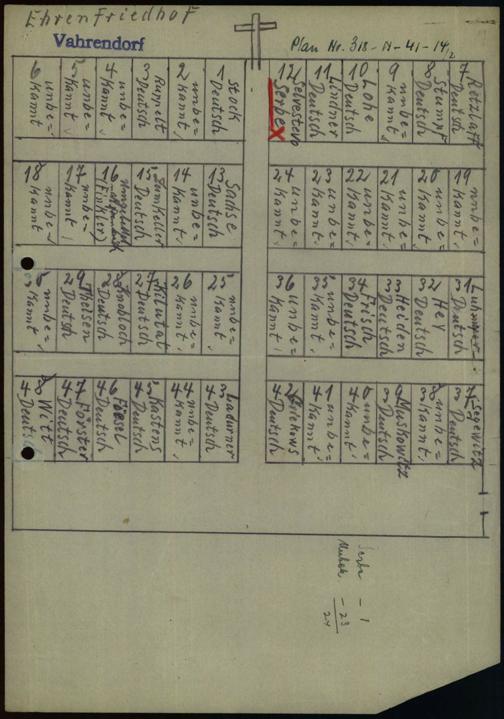 Ehrenfriedhof
Vahrendorf
Plan Nr. 318-N-41-14
6
unbe=
kannt
5
unbe=
kannt
4
unbe=
kannt
3
Ruppelt
Deutsch
2
unbe=
kannt
1
Stock
Deutsch
12
Selvesteyo
Serbe X
11
Lindner
Deutsch
10
Lohe
Deutsch
9
unbe=
kannt
8
Stumpf
Deutsch
7
Retzlaff
Deutsch
18
unbe=
kannt
17
unbe=
kannt
16
(Finkler)
15
Zumkeller
Deutsch
14
unbe=
kannt
13
Sachse
Deutsch
24
unbe=
kannt
23
unbe=
kannt
22
unbe=
kannt
21
unbe=
kannt
20
unbe=
kannt
19
unbe=
kannt
30
unbe=
kannt
29
Theisen
Deutsch
28
Knobloch
Deutsch
27
Kilutat
Deutsch
26
unbe=
kannt
25
unbe=
kannt
36
unbe=
kannt
35
unbe=
kannt
34
Frisch
Deutsch
33
Heiden
Deutsch
32
Hey
Deutsch
31
Deutsch
48
Witt
Deutsch
47
Förster
Deutsch
46
Fiesel
Deutsch
45
Kastens
Deutsch
44
unbe=
kannt
43
Ladurner
Deutsch
42
Deutsch
41
unbe=
kannt
40
unbe=
kannt
39
Muskowitz
Deutsch
38
unbe=
kannt
37
Segewitz
Deutsch
Serbe - 1
Unbek. - 23
24